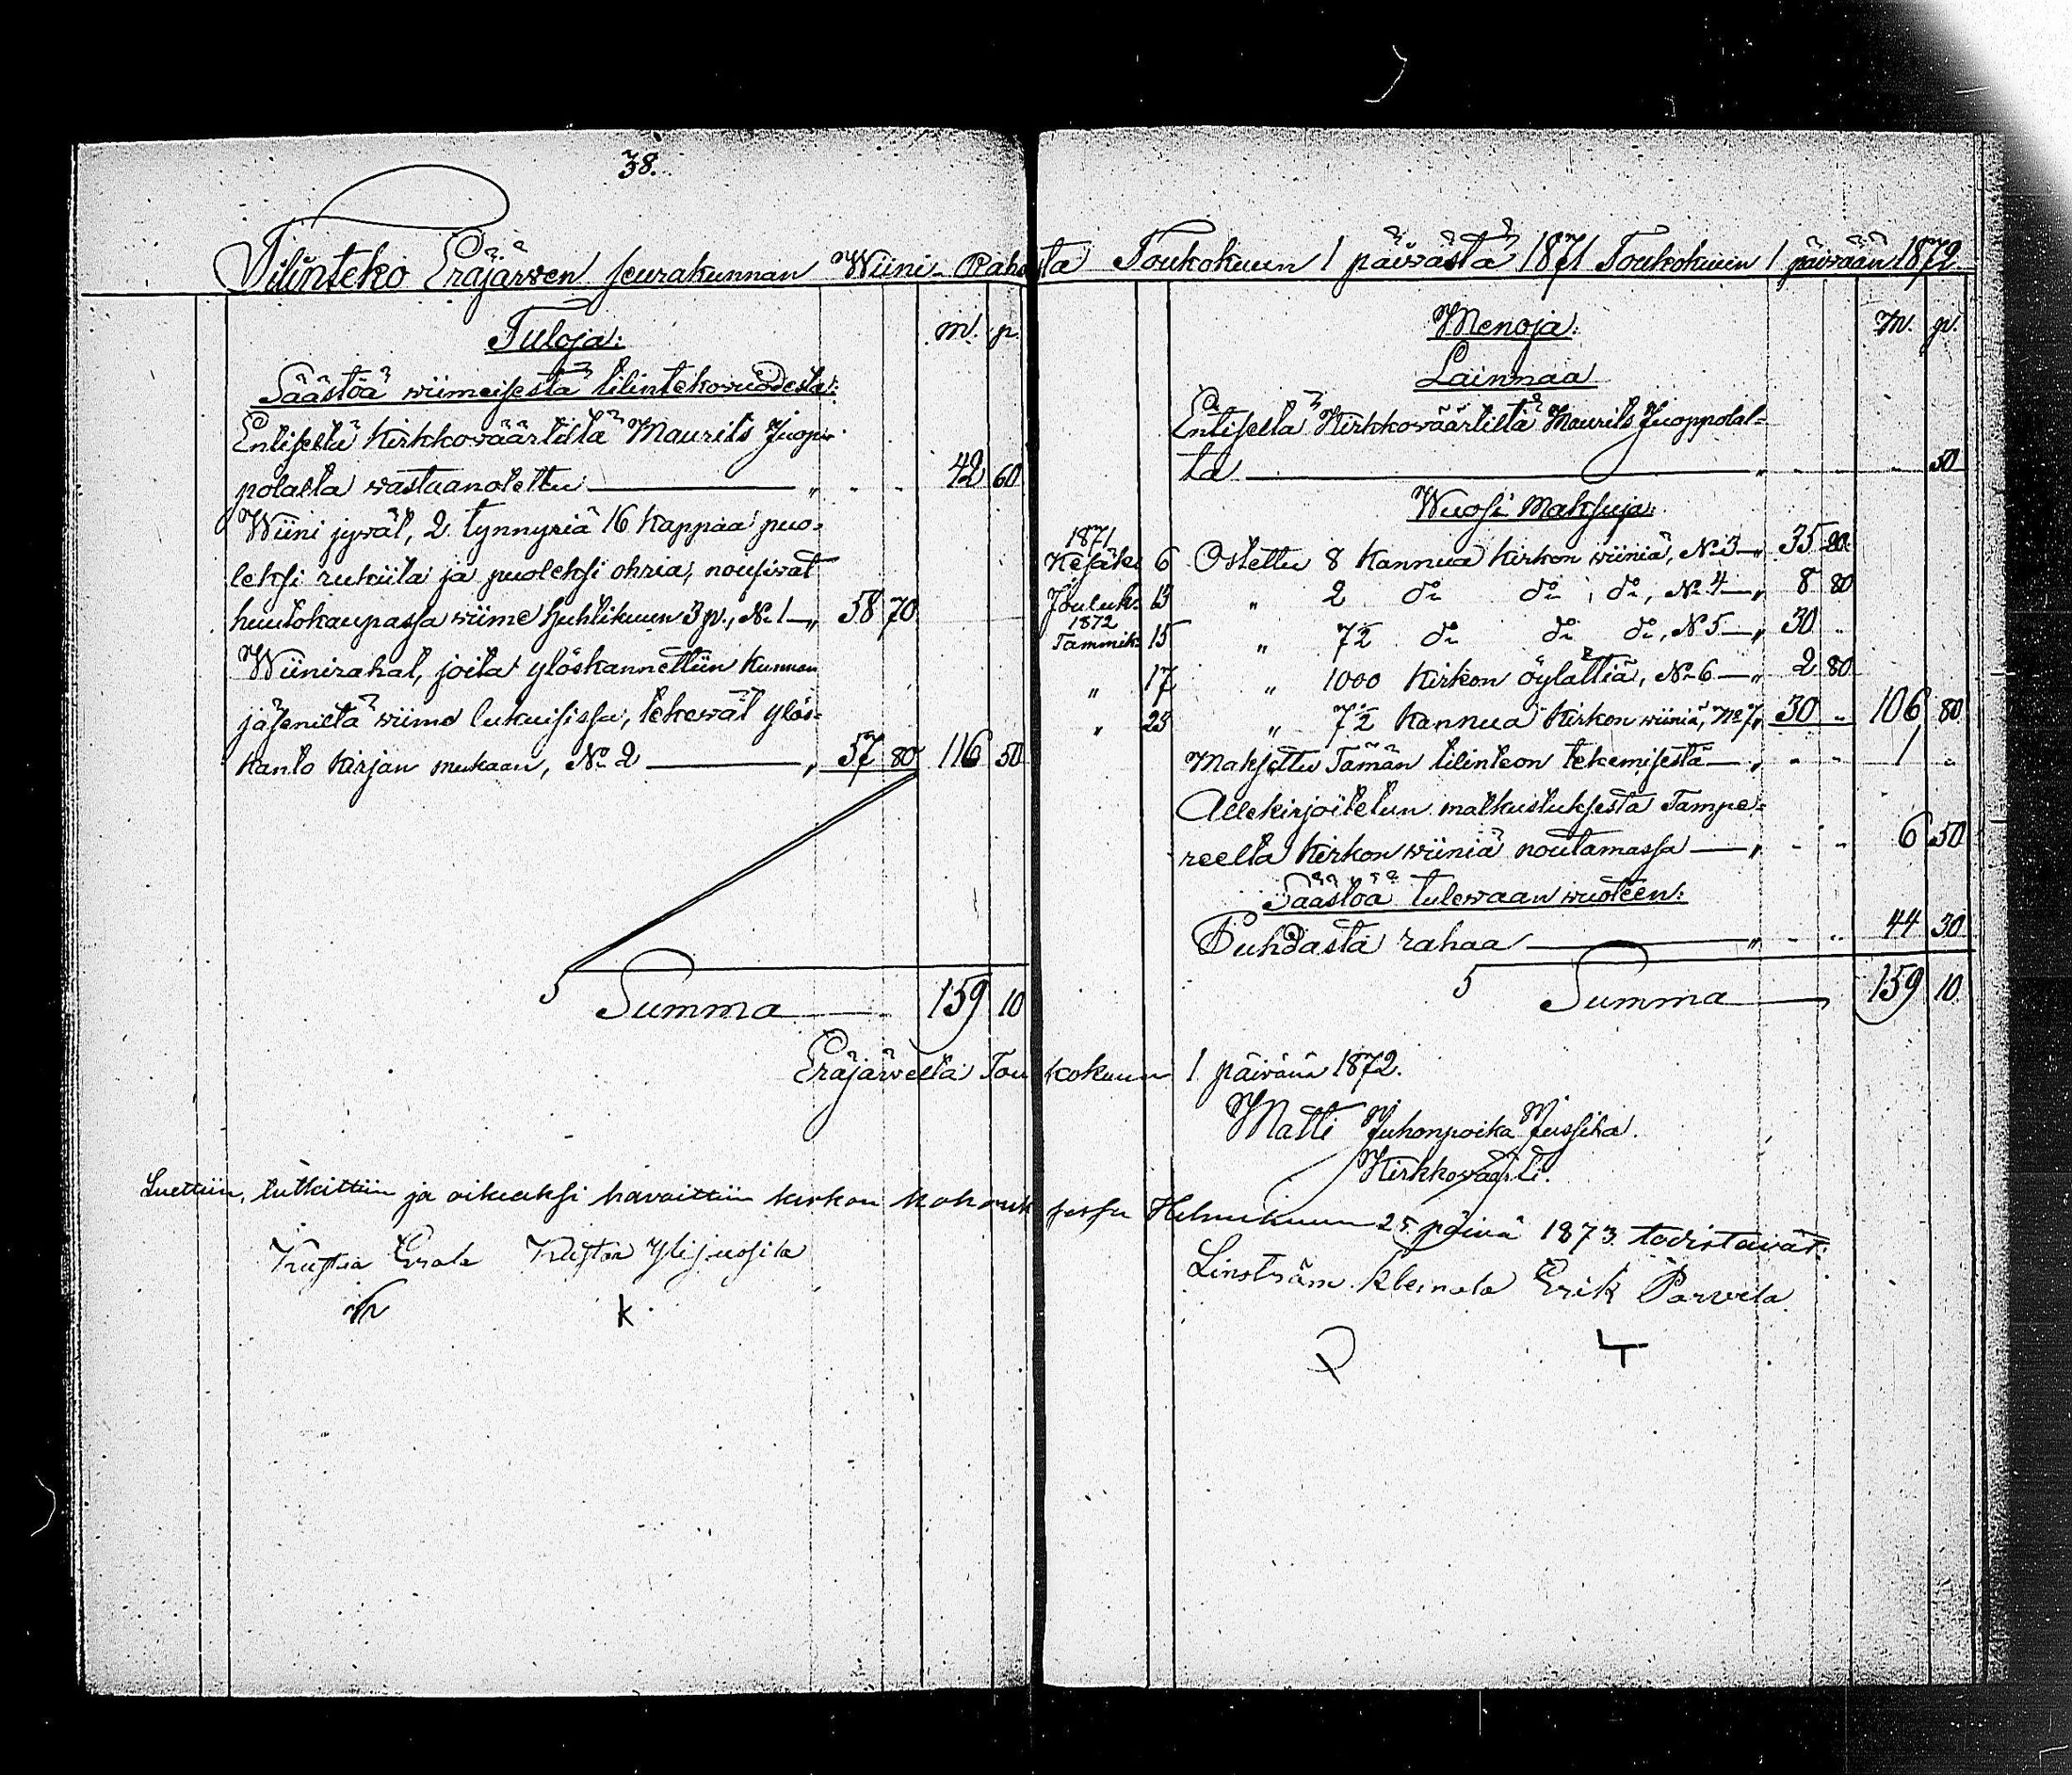 38.
Tilinteko Eräjärwen seurakunnan Wiini-Rahasta Toukokuun 1 päiwästä 1871 Toukokuun 1 päiwään 1872.
Tuloja: m. p.
Säästöä wiimeisestä tilintekowuodesta:
Entiseltä Kirkkowäärtiltä Maurits Juop-
polalta wastaanotettu „ - - 42 60
Wiini jywät, 2 tynnyriä 16 kappaa puo-
leksi rukiita ja puoleksi ohria, nousiwat
huutokaupassa wiime Huhtikuun 3 p., No 1 „ 58 70
Wiinirahat, joita ylöskannettiin kunnan
jäseniltä wiime lukuisissa, tekewät ylös-
kanto kirjan mukaan, No 2 „ 57 80 116 50
Summa 159 10
Menoja: M. p.
Lainnaa
Entiseltä Kirkkowäärtiltä Maurits Juoppolal-
ta „ - - - 50
Wuosi Maksuja:
1871
Kesäk. 6 Ostettu 8 Kannua Kirkon wiiniä, No 3 „ 35 20
Jouluk. 13 „ 2 do do do, No 4 „ 8 80
1872
Tammik. 15 „ 7½ do do do, No 5 „ 30 „
„ 17 „ 1000 Kirkon öylättiä, No 6 „ 2 80
„ 23 „ 7½ Kannua Kirkon wiiniä, No 7 „ 30 „ 106 80
Maksettu Tämän tilinteon tekemisestä „ - - 1 „
Allekirjoitetun matkustuksesta Tampe-
reelta Kirkon wiiniä noutamassa „ - - 6 50
Säästöä tulewaan wuoteen:
Puhdasta rahaa „ - - 44 30
Summa 159 10
Eräjärwellä Toukokuun 1 päiwänä 1872.
Matti Juhonpoika Jussila.
Kirkkowäärti.
Luettiin, tutkittiin ja oikeaksi havaittiin kirkon kokouksessa Helmikuun 25 päivä 1873 todistavat:
Kustaa Erola Kustaa Ylijussila Linström Kleinola Erik Parvela
K